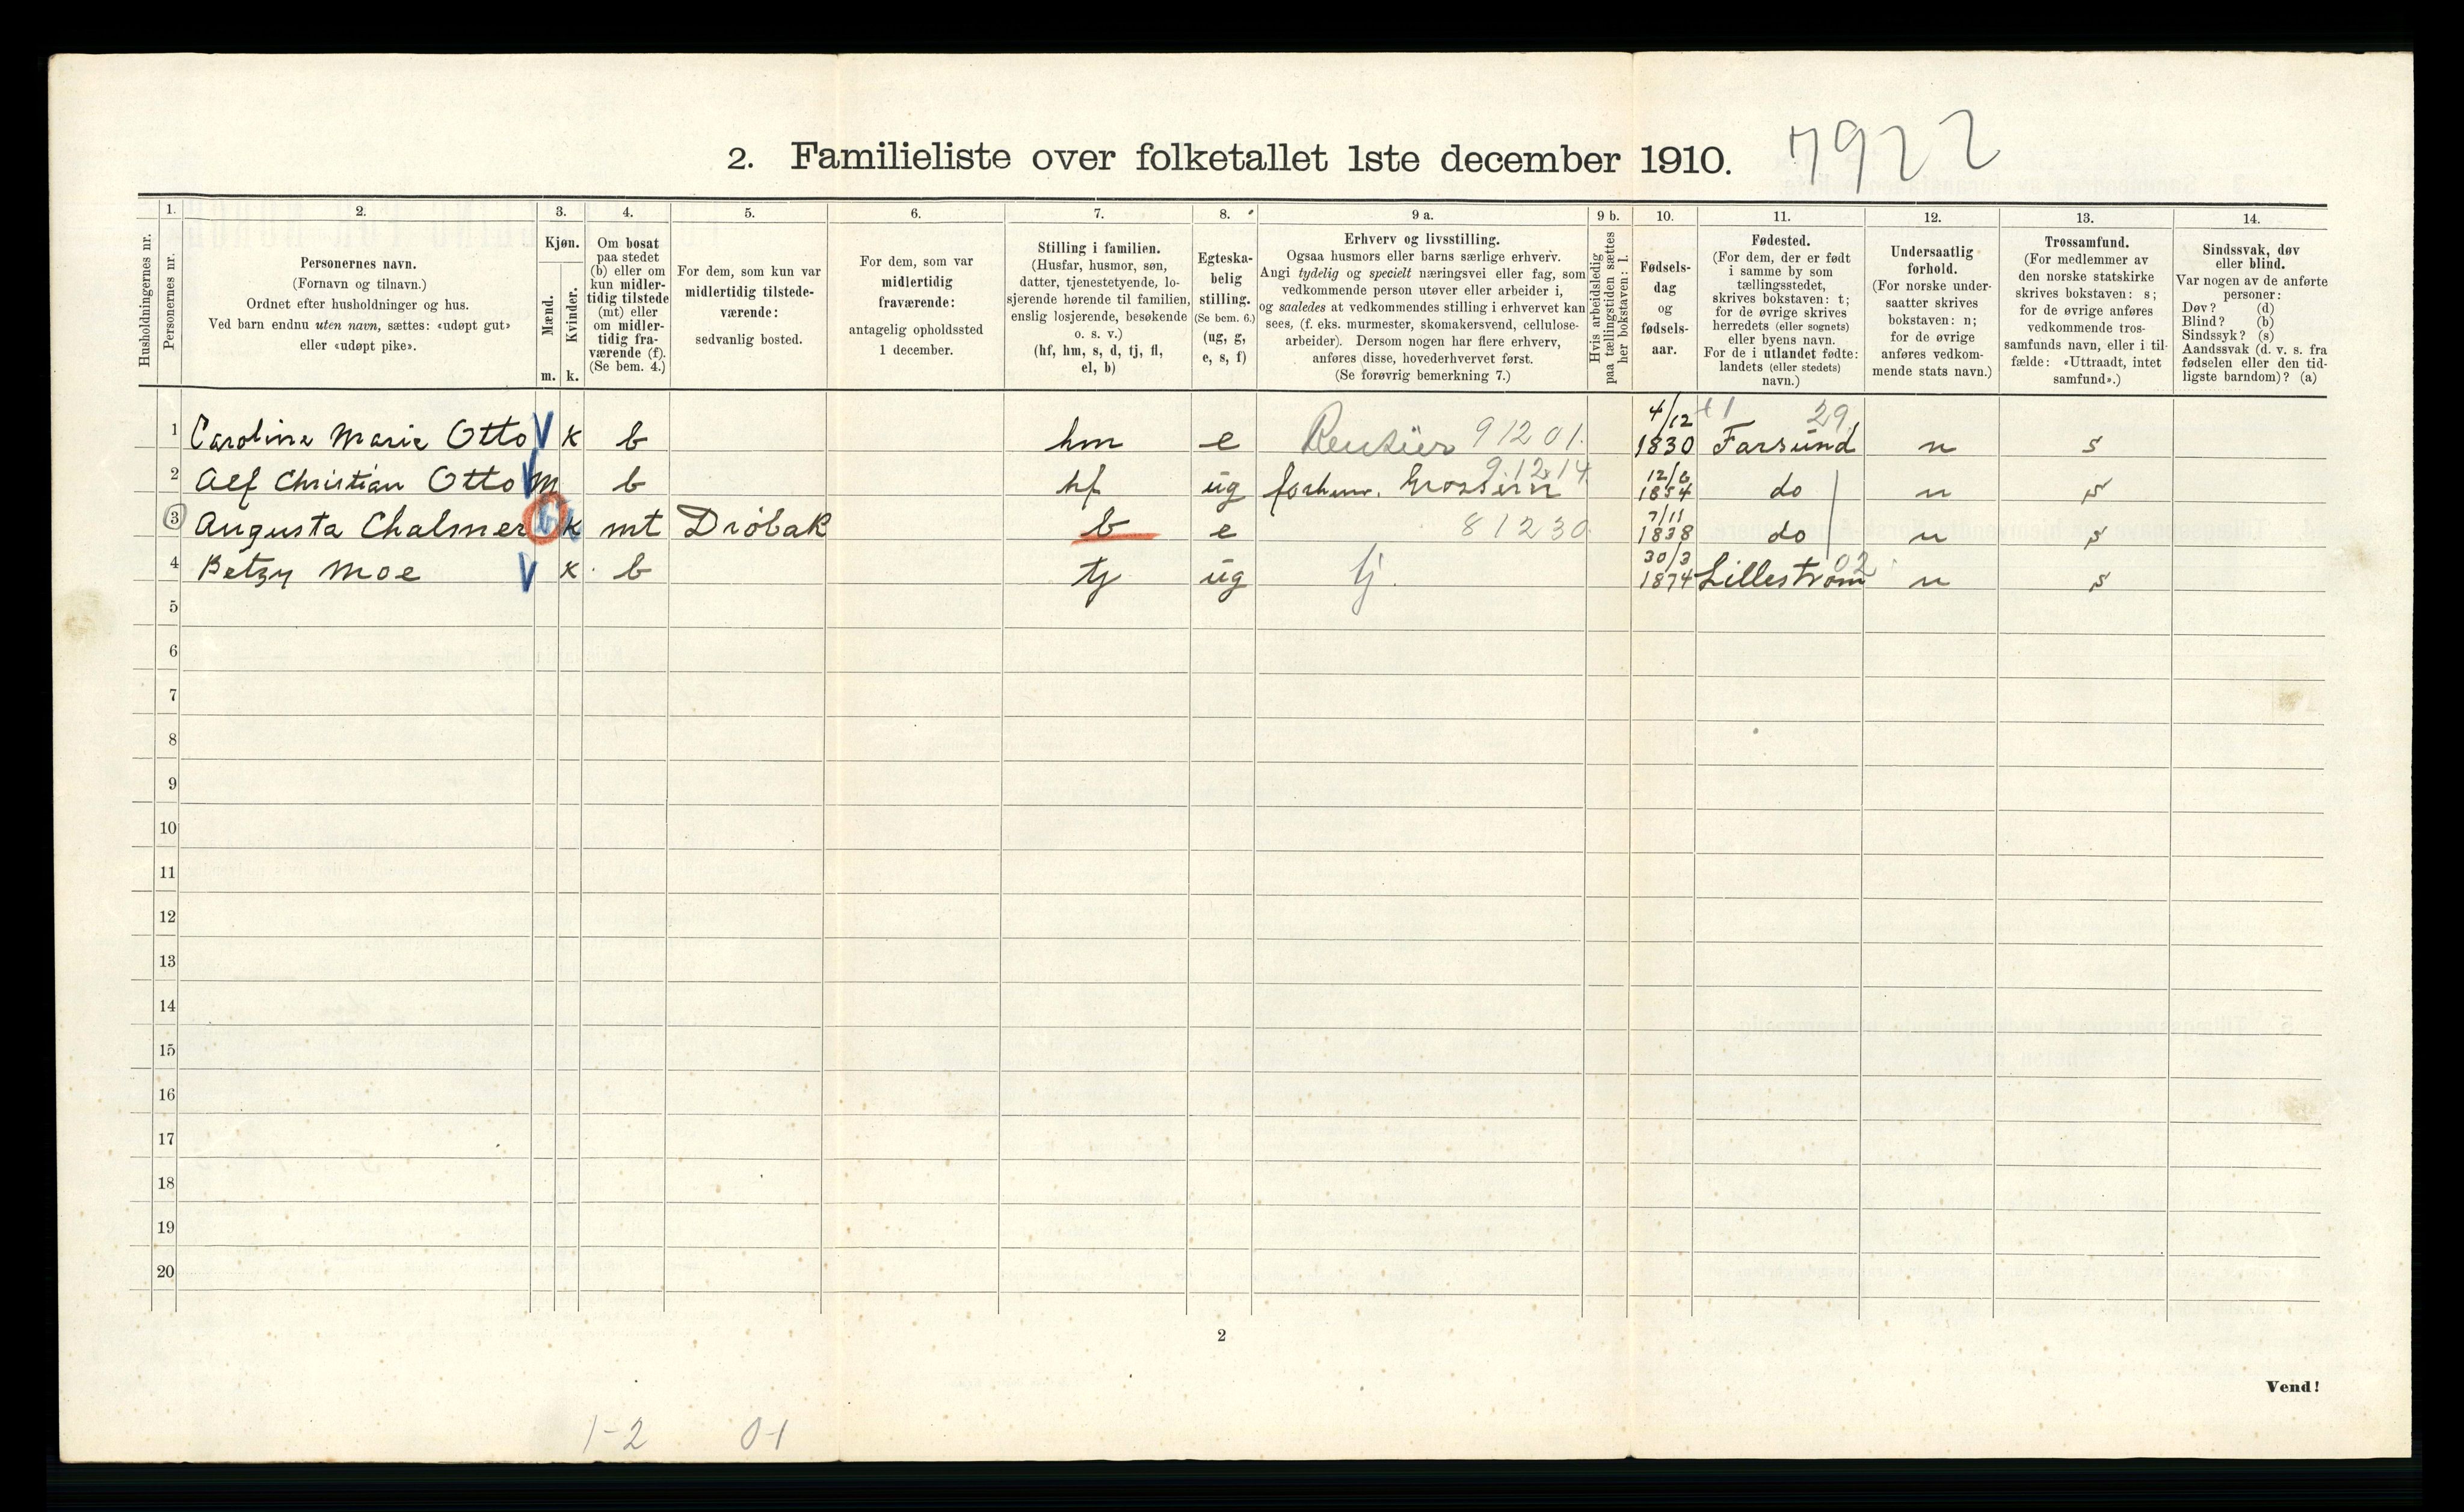 2. Familieliste over folketallet 1ste december 1910. 7922
Husholdningernes nr.
1.
Personernes nr.
2.
Personernes navn.
(Fornavn og tilnavn.)
Ordnet efter husholdninger og hus.
Ved barn endnu uten navn, sættes: «udøpt gut»
eller «udøpt pike».
3.
Kjøn.
Mænd.
Kvinder.
m. k.
4.
Om bosat
paa stedet
(b) eller om
kun midler-
tidig tilstede
(mt) eller
om midler-
tidig fra-
værende (f).
(Se bem. 4.)
5.
For dem, som kun var
midlertidig tilstede-
værende:
sedvanlig bosted.
6.
For dem, som var
midlertidig
fraværende:
antagelig opholdssted
1 december.
7.
Stilling i familien.
(Husfar, husmor, søn,
datter, tjenestetyende, lo-
sjerende hørende til familien,
enslig losjerende, besøkende
o. s. v.)
(hf, hm, s, d, tj, fl,
el, b)
8.
Egteska-
belig
stilling.
(Se bem. 6.)
(ug, g,
e, s, f)
9 a.
Erhverv og livsstilling.
Ogsaa husmors eller barns særlige erhverv.
Angi tydelig og specielt næringsvei eller fag, som
vedkommende person utøver eller arbeider i,
og saaledes at vedkommendes stilling i erhvervet kan
sees, (f. eks. murmester, skomakersvend, cellulose-
arbeider). Dersom nogen har flere erhverv,
anføres disse, hovederhvervet først.
(Se forøvrig bemerkning 7.)
9 b.
Hvis arbeidsledig
paa tællingstiden sættes
her bokstaven: l.
10.
Fødsels-
dag
og
fødsels-
aar.
11.
Fødested.
(For dem, der er født
i samme by som
tællingsstedet,
skrives bokstaven: t;
for de øvrige skrives
herredets (eller sognets)
eller byens navn.
For de i utlandet fødte:
landets (eller stedets)
navn.)
12.
Undersaatlig
forhold.
(For norske under-
saatter skrives
bokstaven: n;
for de øvrige
anføres vedkom-
mende stats navn.)
13.
Trossamfund.
(For medlemmer av
den norske statskirke
skrives bokstaven: s;
for de øvrige anføres
vedkommende tros-
samfunds navn, eller i til-
fælde: «Uttraadt, intet
samfund».)
14.
Sindssvak, døv
eller blind.
Var nogen av de anførte
personer:
Døv? (d)
Blind? (b)
Sindssyk? (s)
Aandssvak (d. v. s. fra
fødselen eller den tid-
ligste barndom)? (a)
1 Caroline Marie Otto k b hm e Rentier 91201. 4/12 1830 Farsund 29 n s
2 Alf Christian Otto m b hf ug forhenv. 9.12.14. 12/6 1854 do n s
3 Augusta Chalmer k mt Drøbak b e 81230 7/11 1838 do n s
4 Betzy Moe k b tj ug tj. 30/3 1874 Lillestrøm 02 n s
5
6
7
8
9
10
11
12
13
14
15
16
17
18
19
20
2
Vend!
1-2 0-1